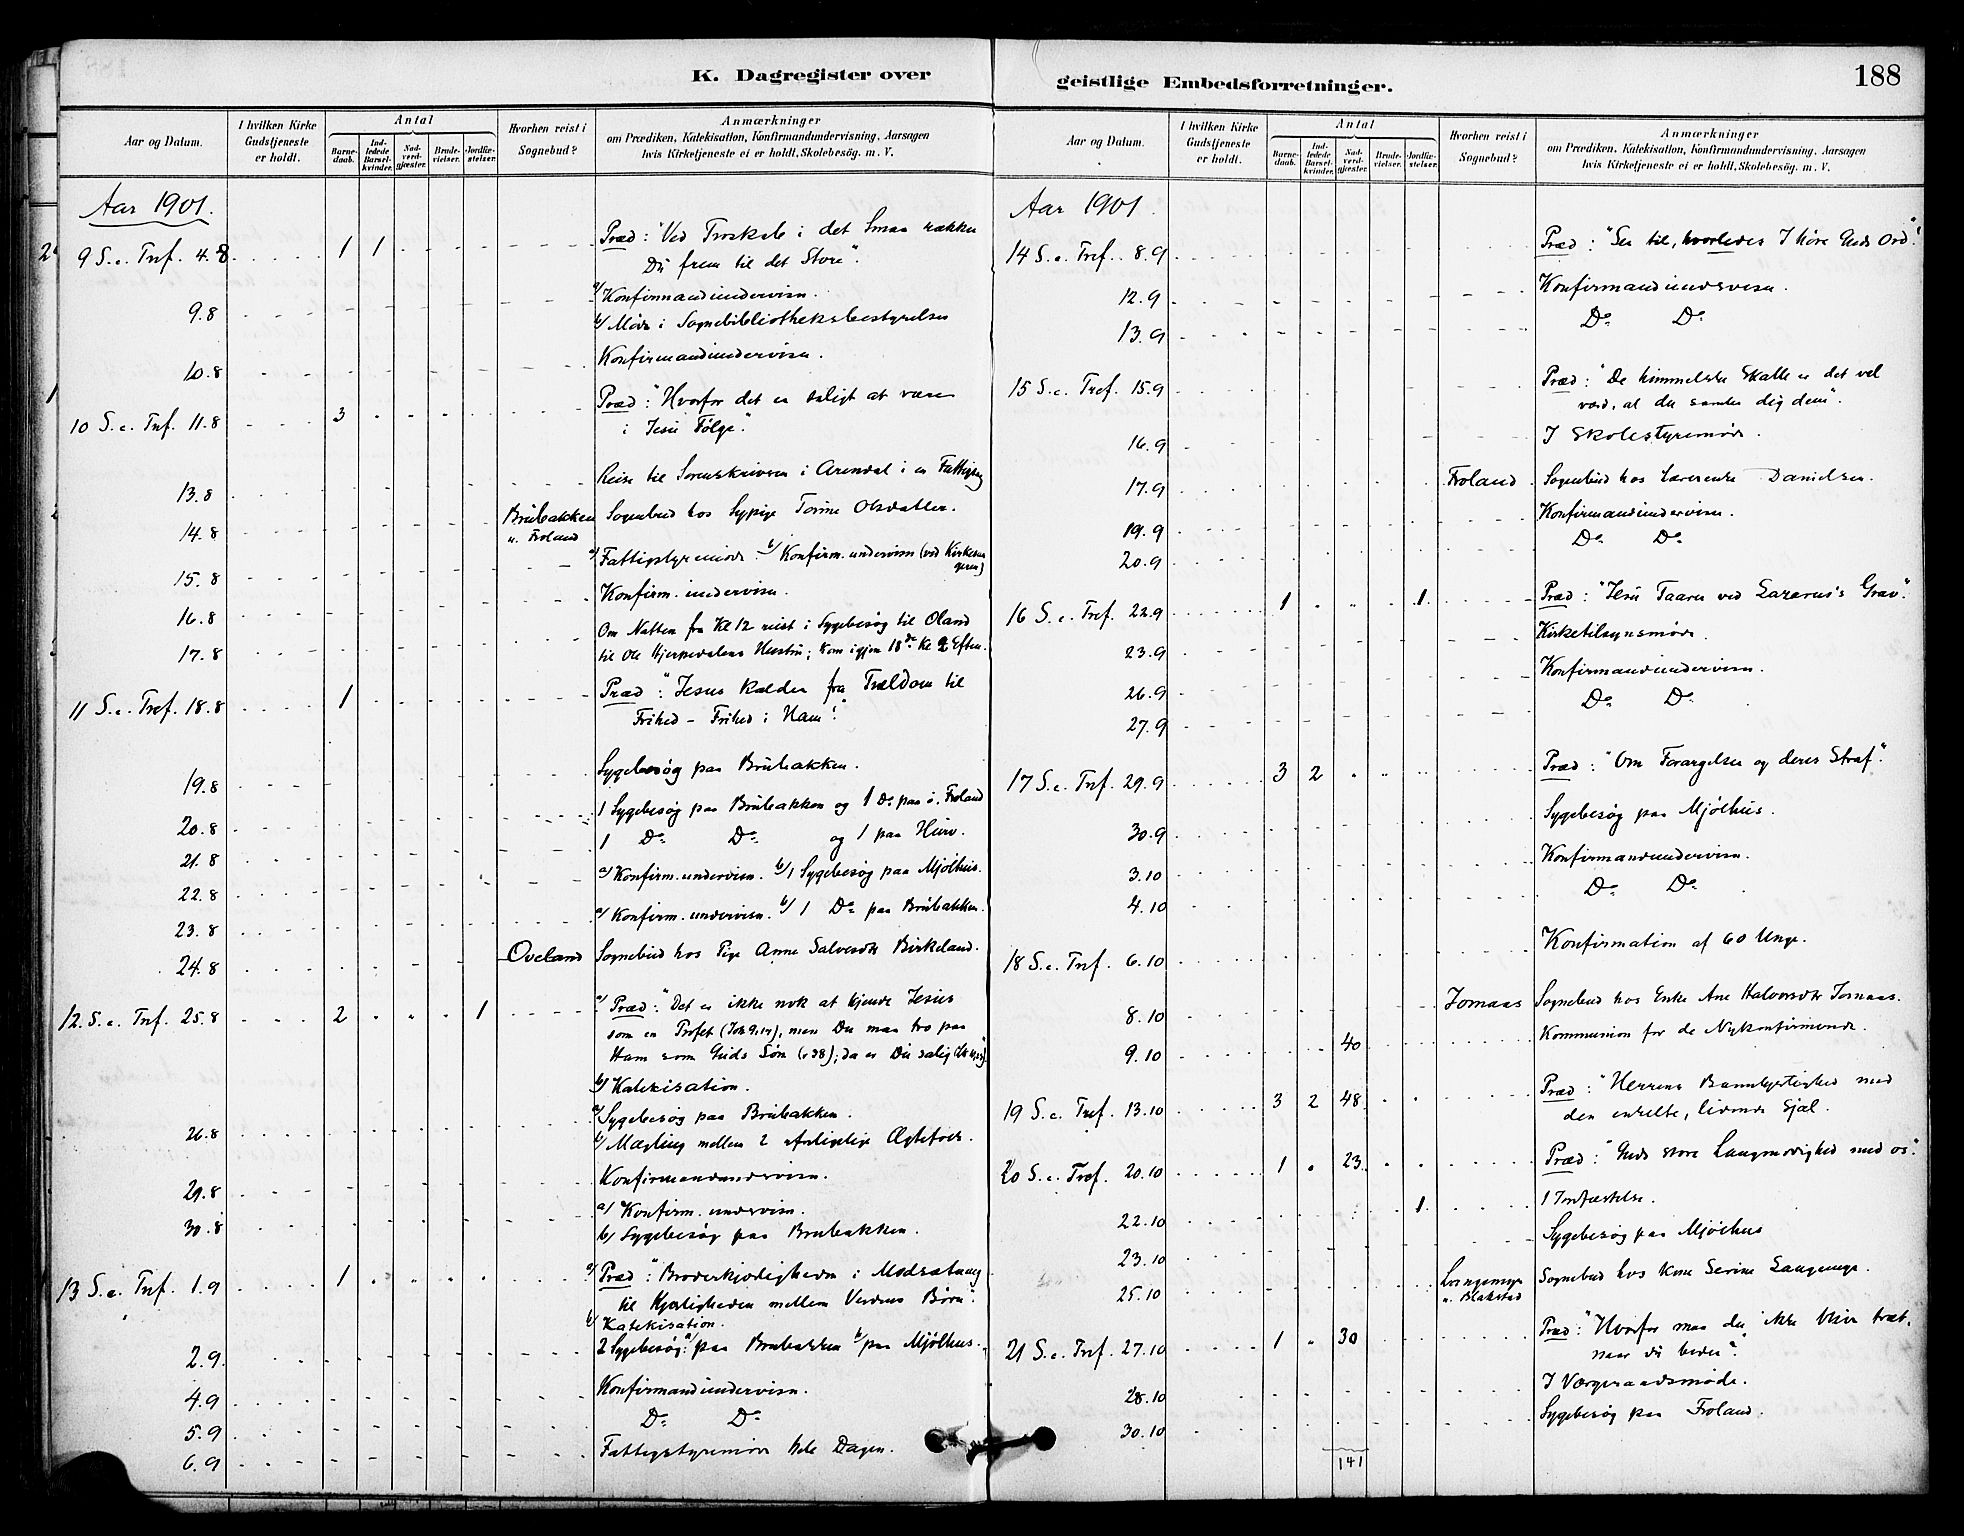 K. Dagregister over
geistlige Embedsforretninger.
188
Aar og Datum.
I hvilken Kirke Gudstjeneste er holdt.
Antal
Barnedaab.
Indledede Barselkvinder.
Nadverdgjester.
Brudevielser.
Jordfæstelser.
Hvorhen reist i Sognebud?
Anmærkninger
om Prædiken, Katekisation, Konfirmandundervisning, Aarsagen
hvis Kirketjeneste ei er holdt, Skolebesøg. m. V.
Aar 1901.
9 S. e. Tref. 4.8 1 1 Præd: "Ved Troskab i det Smaa rækker
Du frem til det Store".
9.8 a/ Konfirmandundervisn.
b/ Møde i Sognebibliotheksbestyrelse
10.8 Konfirmandundervisn.
10 S. e. Tref. 11.8 3 Præd: "Hvorfor det er saligt at være
i Jesu Følge".
13.8 Reise til Sorenskriveren i Arendal i en Fattigsag
14.8 Brubakken u. Froland Sognebud hos Sypige Torine Olsdatter.
15.8 a/ Fattigstyremøde b/ Konfirm. undervisn (ved Kirkesangeren)
16.8 Konfirm. undervisn.
17.8 Om Natten fra Kl 12 reist i Sygebesøg til Oland
til Ole Hjerpedalens Hustru; kom igjen 18de Kl 2 Eftm.
11 S. e. Tref. 18.8 1 Præd: "Jesus kalder fra Trældom til
Frihed - Frihed i Ham!"
19.8 Sygebesøg paa Brubakken.
20.8 1 Sygebesøg paa Brubakken og 1 Do paa ø. Froland
21.8 1 Do Do og 1 paa Hurv.
22.8 a/ Konfirm. undervisn. b/ 1 Sygebesøg paa Mjølhus.
23.8 a/ Konfirm. undervisn. b/ 1 Do paa Brubakken.
24.8 Oveland Sognebud hos Pige Anne Salvesdtr Birkeland.
12. S. e. Tref. 25.8 2 1 a/ Præd: "Det er ikke nok at kjende Jesus
som en Profet (Joh 9,17), men Du maa tro paa
Ham som Guds Søn (v 38); da er Du salig
b/ Katekisation.
26.8 a/ Sygebesøg paa Brubakken.
b/ Mægling mellem 2 uforligelige Ægtefolk.
29.8 Konfirmandundervisn.
30.8 a/ Konfirm. undervisn.
b/ Sygebesøg paa Brubakken.
13 S. e. Tref. 1.9 1 a/ Præd: "Broderkjærligheden i Modsætning
til Kjærligheden mellem Verdens Børn".
b/ Katekisation.
2.9 2 Sygebesøg: a/ paa Brubakken b/ paa Mjølhus.
4.9 Konfirmandundervisn.
5.9 Do Do
6.9 Fattigstyremøde hele Dagen.
Aar og Datum.
I hvilken Kirke Gudstjeneste er holdt.
Antal
Barnedaab.
Indledede Barselkvinder.
Nadverdgjester.
Brudevielser.
Jordfæstelser.
Hvorhen reist i Sognebud?
Anmærkninger
om Prædiken, Katekisation, Konfirmandundervisning, Aarsagen
hvis Kirketjeneste ei er holdt, Skolebesøg. m. V.
Aar 1901.
14 S. e. Tref. 8.9 Præd: "Se til, hvorledes I høre Guds Ord!"
12.9 Konfirmandundervisn.
13.9 Do Do
15 S. e. Tref. 15.9 Præd: "De himmelske Skatte er det vel
værd, at du samler dig dem".
16.9 I Skolestyremøde.
17.9 Froland Sognebud hos Lærerenke Danielsen.
19.9 Konfirmandundervisn.
20.9 Do Do
16 S. e. Tref. 22.9 1 1 Præd: "Jesu Taarer ved Lazarus's Grav".
23.9 Kirketilsynsmøde.
26.9 Konfirmandundervisn.
27.9 Do Do
17 S. e. Tref. 29.9 3 2 Præd: "Om Forargelser og deres Straf".
30.9 Sygebesøg paa Mjølhus.
3.10 Konfirmandundervisn.
4.10 Do Do
18 S. e. Tref. 6.10 Konfirmation af 60 Unge.
8.10 Jomaas Sognebud hos Enke Ane Halvorsdtr Jomaas.
9.10 40 Kommunion for de Nykonfirmerede.
19 S. e. Tref. 13.10 3 2 48 Præd: "Herrens Barmhjertighed med
den enkelte, lidende Sjæl.
20 S. e. Tref. 20.10 1 23 Præd: "Guds store Langmodighed med os".
22.10 1 1 Jordfæstelse.
23.10 Sygebesøg paa Mjølhus
25.10 u. Blakstad Sognebud hos Kone Serine
21 S. e. Tref. 27.10 1 30 Præd: "Hvorfor maa du ikke blive træt,
naar du beder".
28.10 I Værgeraadsmøde.
30.10 Sygebesøg paa Froland.
141